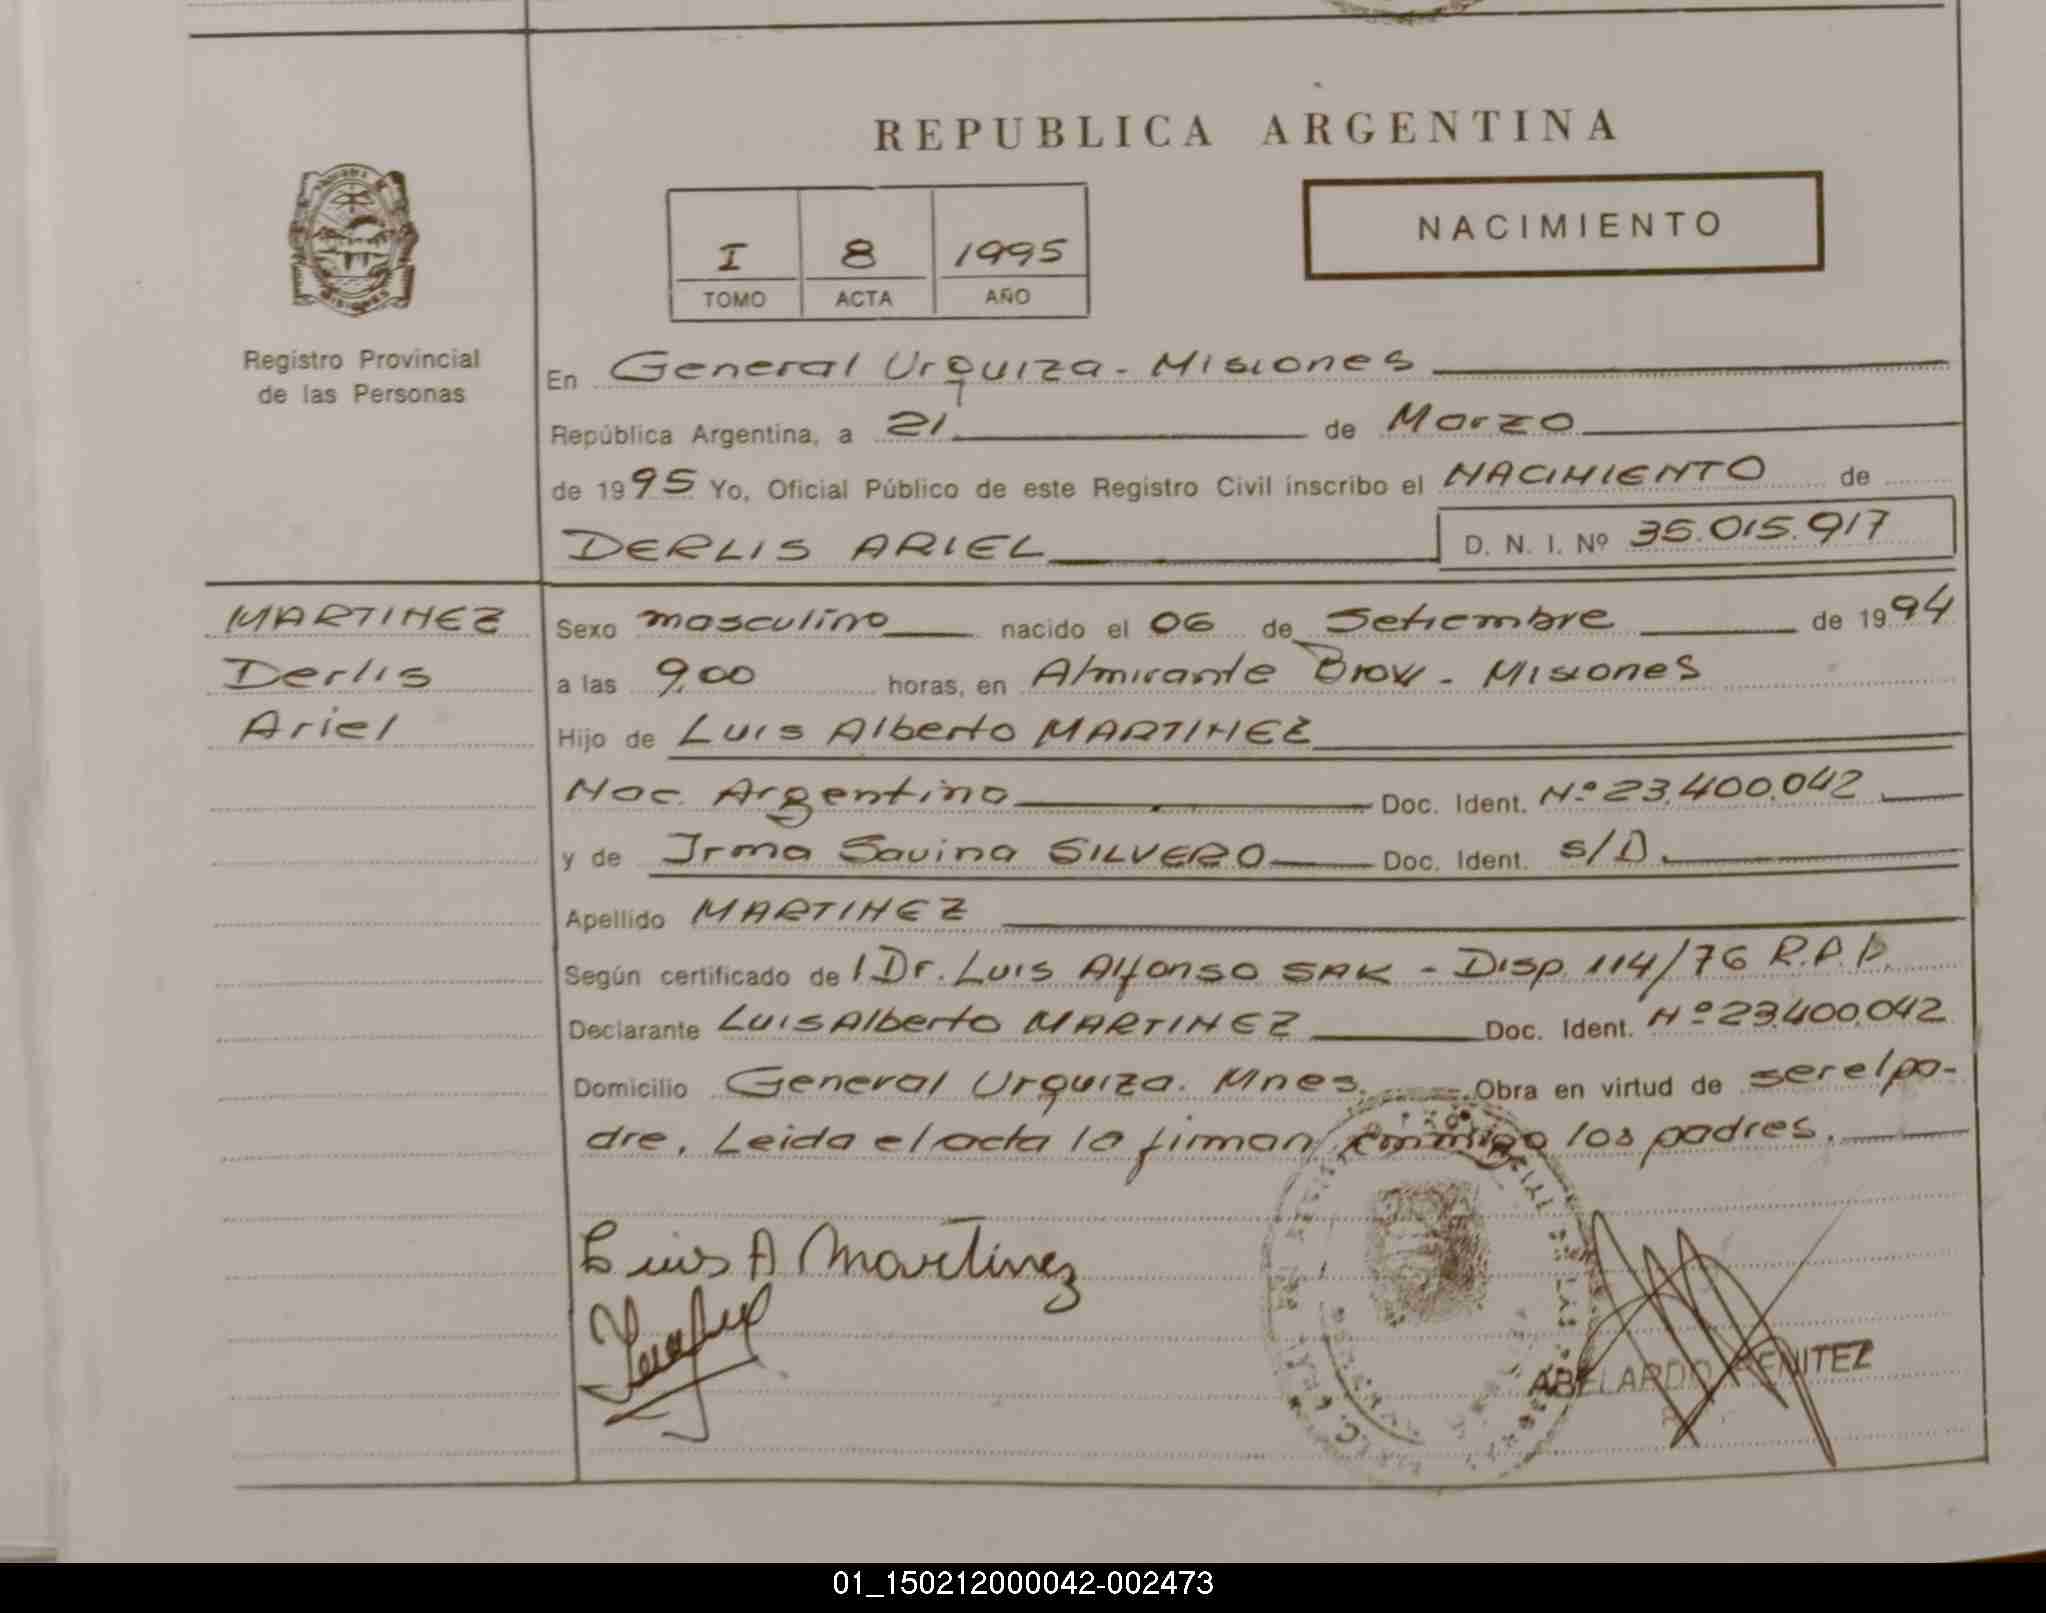 REPUBLICA ARGENTINA
NACIMIENTO
I 8 1995
TOMO ACTA AÑO
Registro Provincial
de las Personas
En General Urquiza - Misiones
República Argentina, a 21 de Marzo
de 1995 Yo, Oficial Público de este Registro Civil inscribo el NACIMIENTO de
DERLIS ARIEL D. N. I. Nº 35.015.917
MARTINEZ
Derlis
Ariel
Sexo masculino nacido el 06 de Setiembre de 1994
a las 9,00 horas, en Almirante Brow - Misiones
Hijo de Luis Alberto MARTINEZ
Nac. Argentina Doc. Ident. Nº 23.400.042
y de Irma Savina SILVERO Doc. Ident. S/D
Apellido MARTINEZ
Según certificado de l Dr. Luis Alfonso SAK - Disp. 114/76 R.P.P.
Declarante Luis Alberto MARTINEZ Doc. Ident. Nº 23.400.042
Domicilio General Urquiza. Mnes. Obra en virtud de ser el pa-
dre, Leida el acta la firman conmigo los padres.
Luis A Martinez
ABELARDO BENITEZ
01_150212000042-002473